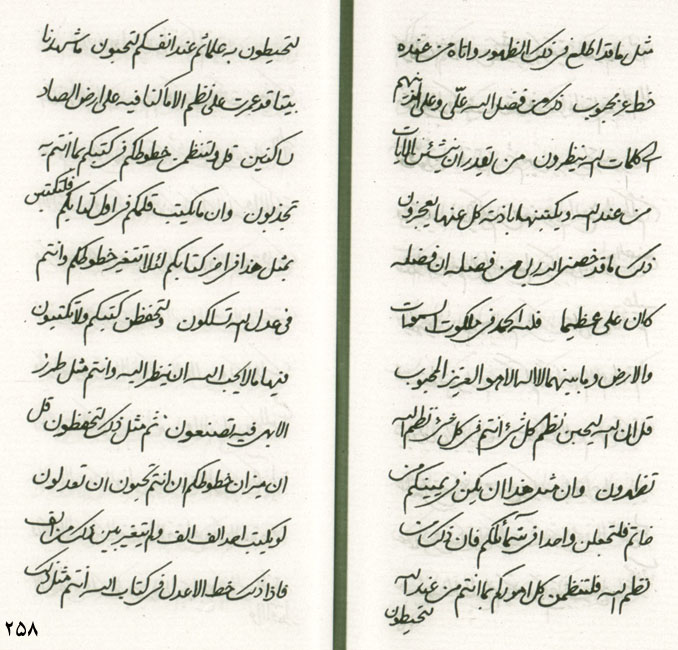 مثل ما قد اطلع فی ذلک الظهور واتاه من عنده
خط عز محبوب ذلک من فضل الله علّی وعلی الذینهم
الی کلمات الله ینظرون من یقدر ان ینشئن الایات
من عند الله ویکتبنها باذنه کل عنها یعجزون
ذلک ما قد خصنی الله ربی من فضله ان فضله
کان علی عظیما فلله الحمد فی ملکوت السموات
والارض وما بینهما لا اله الا هو العزیز المحبوب
قل ان الله لیحبن نظم کل شیء انتم فی کل شیء نظم الله
تظهرون وان مثل هذا ان یکن فی یمینکم من
خاتم فلتجعلن واحدا فی شمائلکم فان ذلک من
نظم الله فلتنظمن کل امورکم بما انتم من عند الله
لتحیطون
لتحیطون به علما ثم عند انفسکم لتحبون ما شهدنا
بیتا قد عمرت علی نظم الا ما کنا فیه علی ارض الصاد
ساکنین قل ولتنظمن خطوطکم فی کتبکم بما انتم به
تجذبون وان ما یکتب قلمکم فی اول کتابکم فلتکتبن
بمثل هذا فی اخر کتابکم لئلا تتغیر خطوطکم وانتم
فی عدل الله تسلکون ولتحفظن کتبکم ولا تکتبون
فیها ما لا یحب الله ان ینظر الیه وانتم مثل طرز
الابهی فیه تصنعون ثم مثل ذلک لتحفظون قل
ان میزان خطوطکم ان انتم تحبون ان تعدلون
لو یکتب احد الف الف ولم یتغیر بین ذلک من الف
فاذا ذلک خط الاعدل فی کتاب الله انتم مثل ذلک
۲۵۸